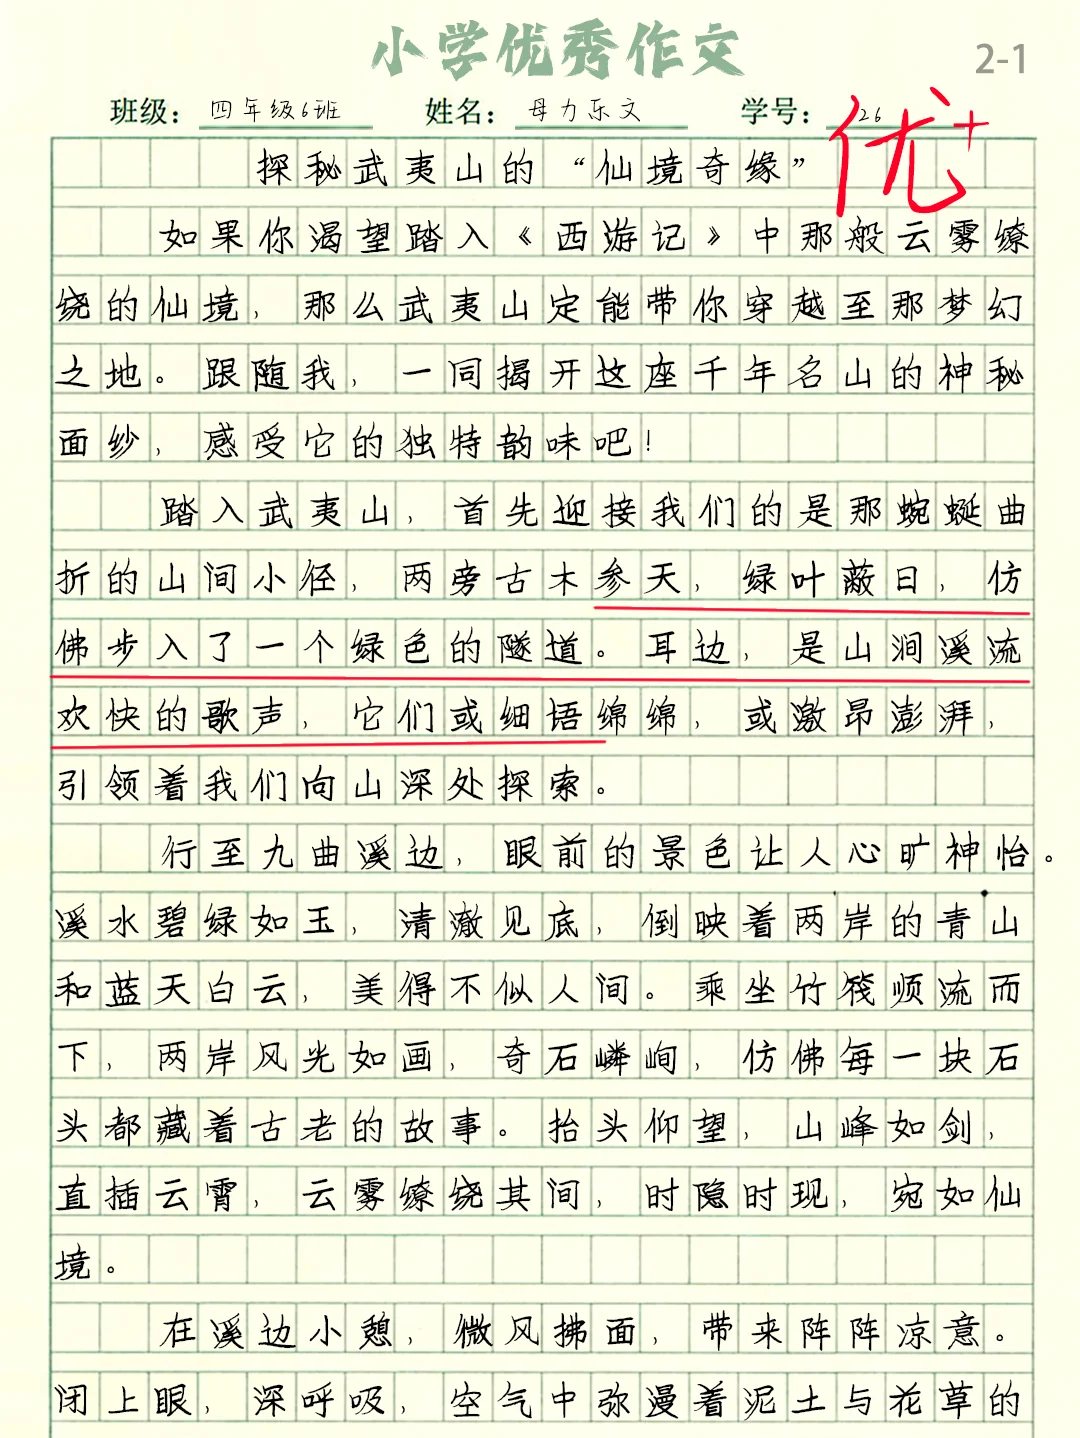 小学优秀作文
2-1
班级：四年级6班 姓名：母力乐文 学号：26
优+
探秘武夷山的“仙境奇缘”
如果你渴望踏入《西游记》中那般云雾缭
绕的仙境，那么武夷山定能带你穿越至那梦幻
之地。跟随我，一同揭开这座千年名山的神秘
面纱，感受它的独特韵味吧！
踏入武夷山，首先迎接我们的是那蜿蜒曲
折的山间小径，两旁古木参天，绿叶蔽日，仿
佛步入了一个绿色的隧道。耳边，是山涧溪流
欢快的歌声，它们或细语绵绵，或激昂澎湃，
引领着我们向山深处探索。
行至九曲溪边，眼前的景色让人心旷神怡。
溪水碧绿如玉，清澈见底，倒映着两岸的青山
和蓝天白云，美得不似人间。乘坐竹筏顺流而
下，两岸风光如画，奇石嶙峋，仿佛每一块石
头都藏着古老的故事。抬头仰望，山峰如剑，
直插云霄，云雾缭绕其间，时隐时现，宛如仙
境。
在溪边小憩，微风拂面，带来阵阵凉意。
闭上眼，深呼吸，空气中弥漫着泥土与花草的